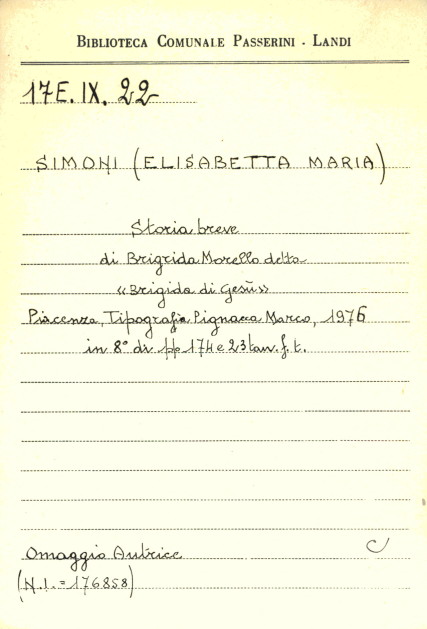 BIBLIOTECA COMUNALE PASSERINI - LANDI
17E. IX. 22
SIMONI (ELISABETTA MARIA)
Storia breve
di Brigida Morello detta
«Brigida di Gesù»
Piacenza, Tipografia Pignacca Marco, 1976
in 8° di pp 174 e 23 tav. f. t.
Omaggio Autrice
C
(N.I. = 176858)